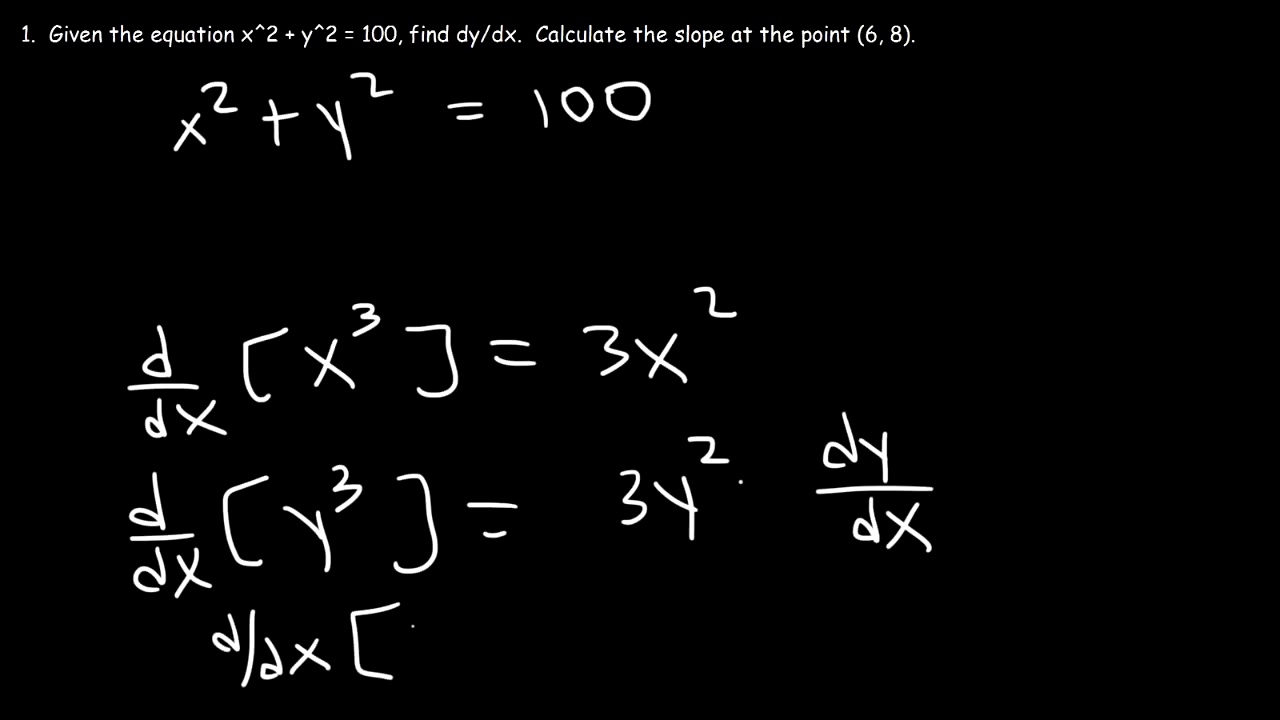 1. Given the equation x^2 + y^2 = 100, find dy/dx. Calculate the slope at the point (6, 8).
x² + y² = 100
d/dx [x³] = 3x²
d/dx [y³] = 3y² · dy/dx
d/dx [